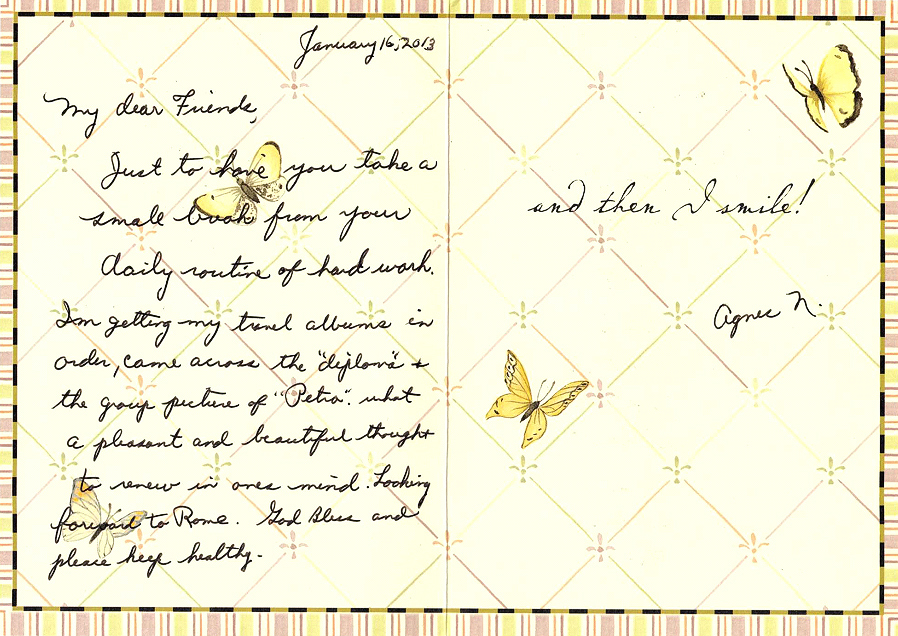 January 16, 2013
My dear Friends,
Just to have you take a
small break from your
daily routine of hard work.
Im getting my travel albums in
order, came across the "diploma" +
the group picture of "Petra". what
a pleasant and beautiful thought
to renew in ones mind. Looking
forward to Rome. God Bless and
please keep healthy.
and then I smile!
Agnes N.